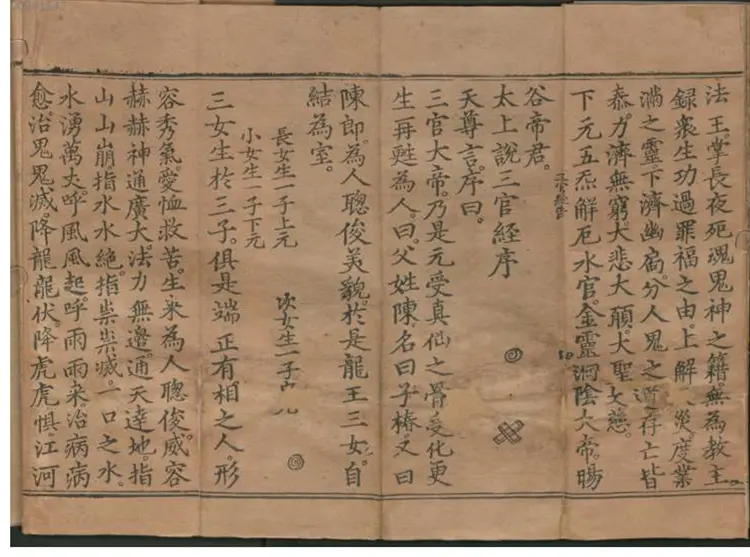 法王。掌長夜死魂鬼神之籍。無為教主。
録衆生功過罪福之由。上解 災。度業
滿之靈。下濟幽扃。分人鬼之 。存亡皆
泰。力濟無窮。大悲大願。大聖大慈。
下元五炁解厄水官。金靈洞陰大帝。暘
谷帝君。
太上說三官經序
天尊言。序曰。
三官大帝。乃是元受真仙之骨。受化更
生。再甦為人。曰。父姓陳。名曰子椿。又曰
陳郎。為人聰俊美貌。於是龍王三女。自
結為室。
長女生一子上元
次女生一子中元
小女生一子下元
三女生於三子。俱是端正有相之人。形
容秀氣。愛恤救苦。生來為人聰俊。威容
赫赫。神通廣大。法力無邊。通天達地。指
山山崩。指水水絕。指祟祟滅。一口之水。
水湧萬丈。呼風風起。呼雨雨來。治病病
愈。治鬼鬼滅。降龍龍伏。降虎虎惧。江河